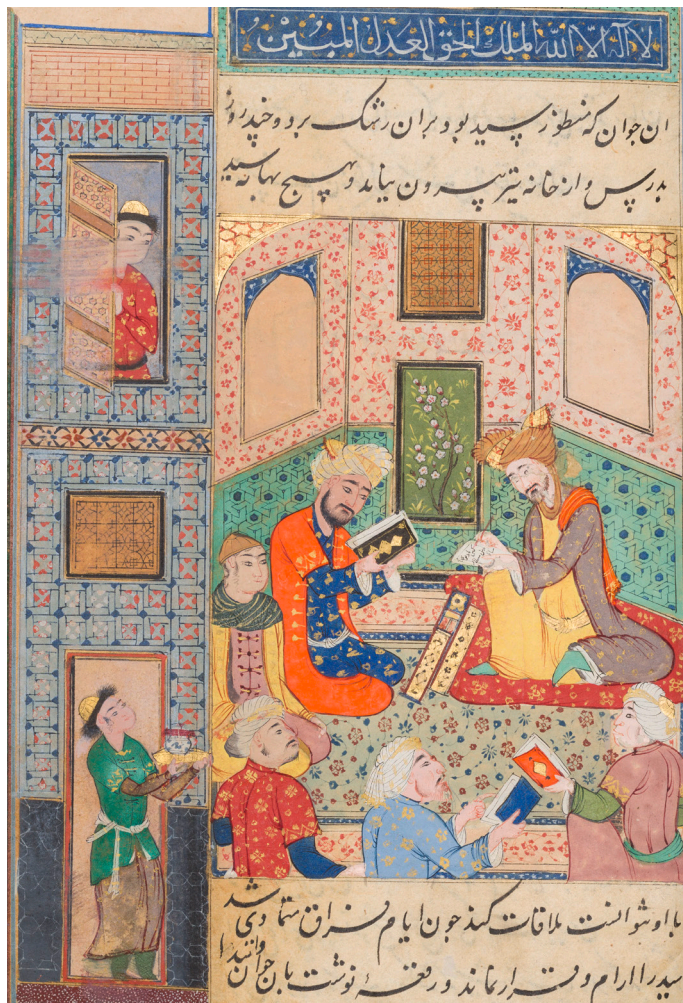 لا اله الا الله الملك الحق العدل المبین
ان جوان که منظور سید بود بران رشک برد و چند روز
بدرس و از خانه نیز بیرون و بهیچ بهانه سید
با او نتوانست ملاقات کند چون ایام فراق متمادی شد
سید را ارام و قرار نماند و رقعهٔ نوشت بان جوان